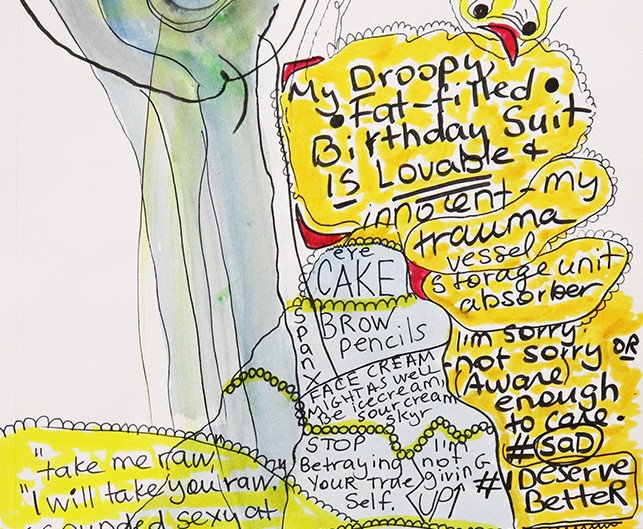 My Droopy
• Fat-filled •
Birthday Suit
IS Lovable &
innocent - my
trauma
vessel
storage unit
absorber
I'm sorry.
not sorry OR
(Aware)
enough
to care.
#SaD
#I DeServe
BetteR
eye
CAKE
BROW
pencils
SPANX
FACE CREAM
MIGHT AS well
Be icecream,
Be sour cream
skyr
STOP
Betraying
YOUR True
Self.
I'm
not
giving
UP!
"take me raw,
"I will take you raw."
sounded sexy at